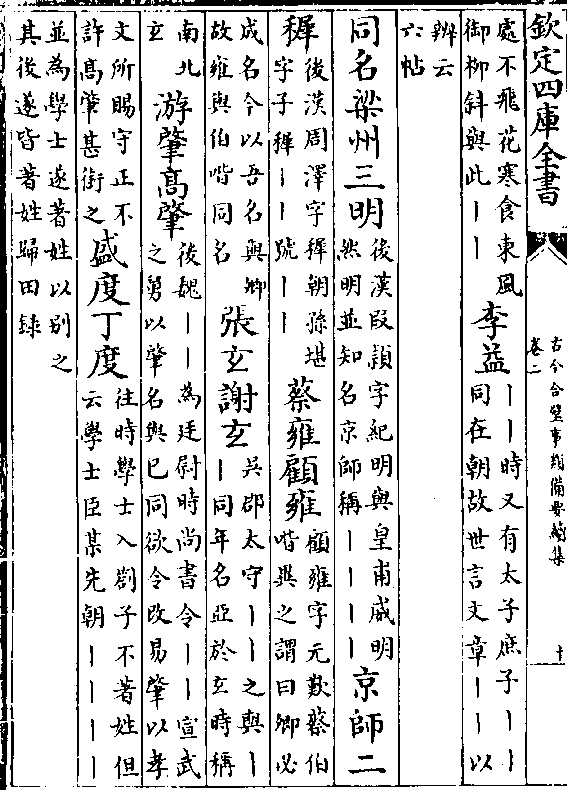 欽定四庫全書
古今合璧事類備要續集
卷二
十
處不飛花寒食東風
御柳斜與此丨丨
李益
丨丨時又有太子庶子丨丨
同在朝故世言文章丨丨以
辨云
六帖
同名梁州三明
後漢段熲字紀明與皇甫威明
然明並知名京師稱丨丨丨丨
京師二
穉
後漢周澤字穉朝孫堪
字子穉丨丨號丨丨
蔡雍顧雍
顧雍字元歎蔡伯
喈異之謂曰卿必
成名今以吾名與卿
故雍與伯喈同名
張玄謝玄
吳郡太守丨丨之與丨
丨同年名亞於玄時稱
南北
玄
游肇高肇
後魏丨丨為廷尉時尚書令丨丨宣武
之舅以肇名與己同欲令改易肇以孝
文所賜守正不
許高肇甚銜之
盛度丁度
往時學士入劄子不著姓但
云學士臣某先朝丨丨丨丨
並為學士遂著姓以別之
其後遂皆著姓歸田録